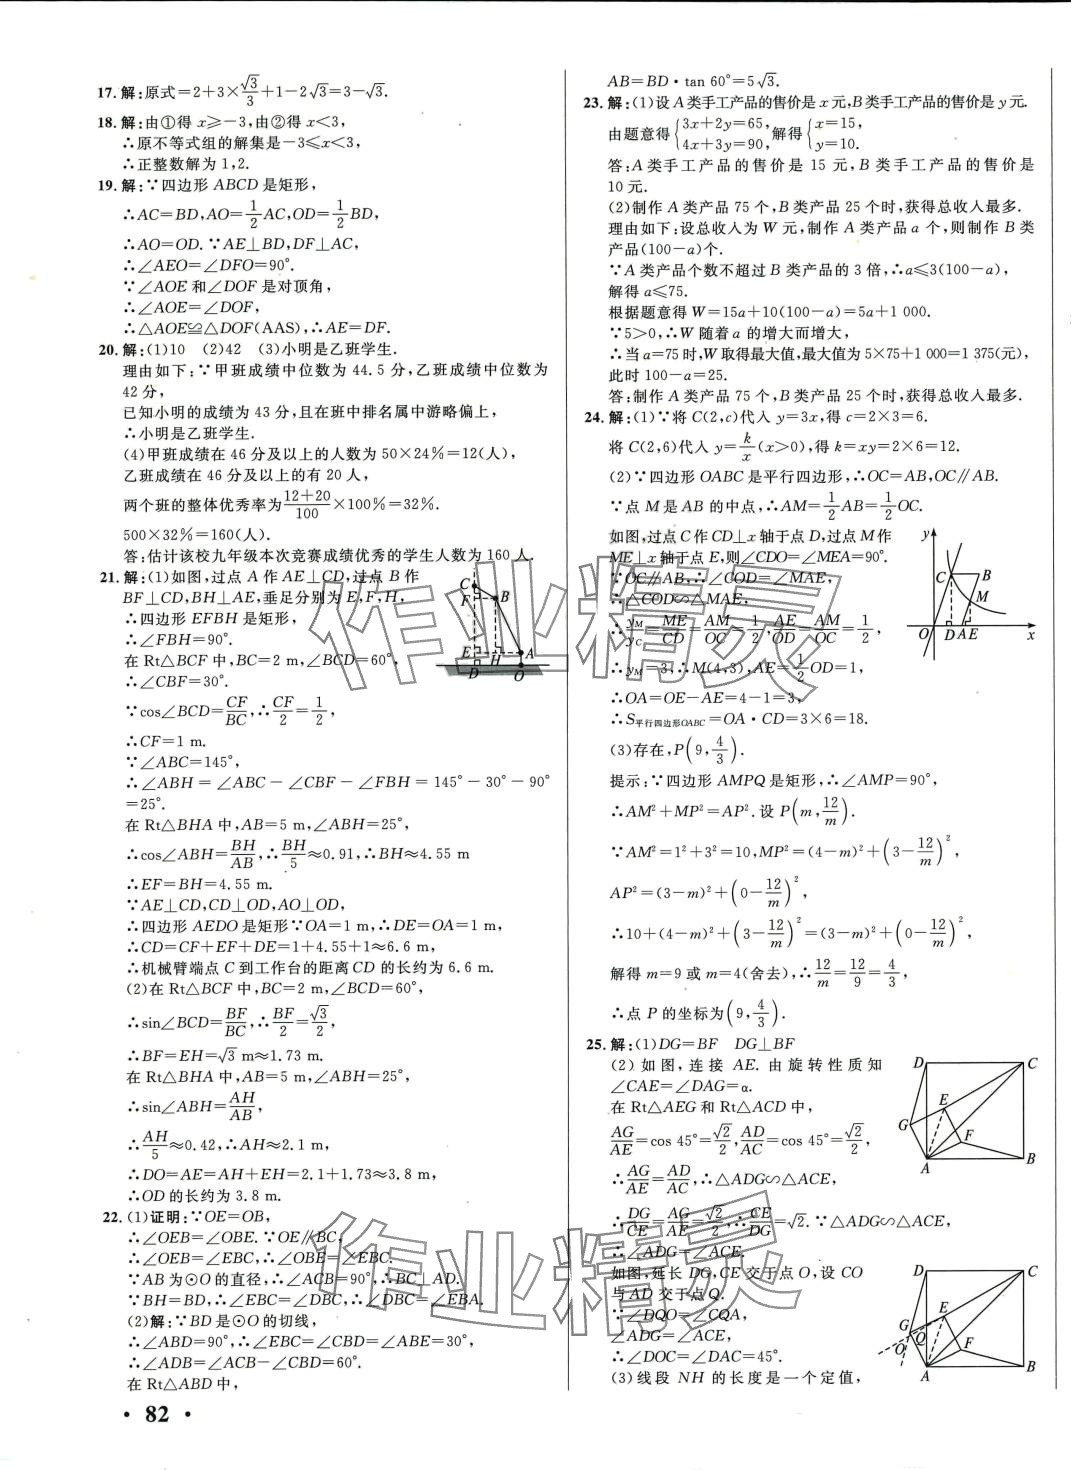 17. 解:原式=2+3×√3/3+1-2√3=3-√3.
18. 解:由①得 x≥-3,由②得 x<3,
∴原不等式组的解集是-3≤x<3,
∴正整数解为 1,2.
19. 解:∵四边形 ABCD 是矩形,
∴AC=BD,AO=1/2AC,OD=1/2BD,
∴AO=OD.∵AE⊥BD,DF⊥AC,
∴∠AEO=∠DFO=90°.
∵∠AOE 和∠DOF 是对顶角,
∴∠AOE=∠DOF,
∴△AOE≌△DOF(AAS),∴AE=DF.
20. 解:(1)10 (2)42 (3)小明是乙班学生.
理由如下:∵甲班成绩中位数为 44.5 分,乙班成绩中位数为
42 分,
已知小明的成绩为 43 分,且在班中排名属中游略偏上,
∴小明是乙班学生.
(4)甲班成绩在 46 分及以上的人数为 50×24%=12(人),
乙班成绩在 46 分及以上的有 20 人,
两个班的整体优秀率为(12+20)/100×100%=32%.
500×32%=160(人).
答:估计该校九年级本次竞赛成绩优秀的学生人数为 160 人.
21. 解:(1)如图,过点 A 作 AE⊥CD,过点 B 作
BF⊥CD,BH⊥AE,垂足分别为 E,F,H,
∴四边形 EFBH 是矩形,
∴∠FBH=90°.
在 Rt△BCF 中,BC=2 m,∠BCD=60°,
∴∠CBF=30°.
∵cos∠BCD=CF/BC,∴CF/2=1/2,
∴CF=1 m.
∵∠ABC=145°,
∴∠ABH=∠ABC-∠CBF-∠FBH=145°-30°-90°
=25°.
在 Rt△BHA 中,AB=5 m,∠ABH=25°,
∴cos∠ABH=BH/AB,∴BH/5≈0.91,∴BH≈4.55 m
∴EF=BH=4.55 m.
∵AE⊥CD,CD⊥OD,AO⊥OD,
∴四边形 AEDO 是矩形∵OA=1 m,∴DE=OA=1 m,
∴CD=CF+EF+DE=1+4.55+1≈6.6 m.
∴机械臂端点 C 到工作台的距离 CD 的长约为 6.6 m.
(2)在 Rt△BCF 中,BC=2 m,∠BCD=60°,
∴sin∠BCD=BF/BC,∴BF/2=√3/2,
∴BF=EH=√3 m≈1.73 m.
在 Rt△BHA 中,AB=5 m,∠ABH=25°,
∴sin∠ABH=AH/AB,
∴AH/5≈0.42,∴AH≈2.1 m,
∴DO=AE=AH+EH=2.1+1.73≈3.8 m.
∴OD 的长约为 3.8 m.
22. (1)证明:∵OE=OB,
∴∠OEB=∠OBE.∵OE∥BC,
∴∠OEB=∠EBC,∴∠OBE=∠EBC.
∵AB 为⊙O 的直径,∴∠ACB=90°,∴BC⊥AD.
∵BH=BD,∴∠EBC=∠DBC,∴∠DBC=∠EBA.
(2)解:∵BD 是⊙O 的切线,
∴∠ABD=90°,∴∠EBC=∠CBD=∠ABE=30°,
∴∠ADB=∠ACB-∠CBD=60°.
在 Rt△ABD 中,
• 82 •
C
F
B
E
H
A
D
O
AB=BD·tan 60°=5√3.
23. 解:(1)设 A 类手工产品的售价是 x 元,B 类手工产品的售价是 y 元.
由题意得{3x+2y=65, 4x+3y=90,解得{x=15, y=10.
答:A 类手工产品的售价是 15 元,B 类手工产品的售价是
10 元.
(2)制作 A 类产品 75 个,B 类产品 25 个时,获得总收入最多.
理由如下:设总收入为 W 元,制作 A 类产品 a 个,则制作 B 类
产品(100-a)个.
∵A 类产品个数不超过 B 类产品的 3 倍,∴a≤3(100-a),
解得 a≤75.
根据题意得 W=15a+10(100-a)=5a+1 000.
∵5>0,∴W 随着 a 的增大而增大,
∴当 a=75时,W 取得最大值,最大值为 5×75+1 000=1 375(元),
此时 100-a=25.
答:制作 A 类产品 75 个,B 类产品 25 个时,获得总收入最多.
24. 解:(1)∵将 C(2,c)代入 y=3x,得 c=2×3=6.
将 C(2,6)代入 y=k/x(x>0),得 k=xy=2×6=12.
(2)∵四边形 OABC 是平行四边形,∴OC=AB,OC∥AB.
∵点 M 是 AB 的中点,∴AM=1/2AB=1/2OC.
如图,过点 C 作 CD⊥x 轴于点 D,过点 M 作
ME⊥x 轴于点 E,则∠CDO=∠MEA=90°.
∵OC∥AB,∴∠COD=∠MAE,
∴△COD∽△MAE,
∴yM/yC=ME/CD=AM/OC=1/2,AE/OD=AM/OC=1/2,
∴yM=3,∴M(4,3),AE=1/2OD=1,
∴OA=OE-AE=4-1=3,
∴S平行四边形OABC=OA·CD=3×6=18.
(3)存在,P(9,4/3).
提示:∵四边形 AMPQ 是矩形,∴∠AMP=90°,
∴AM²+MP²=AP².设 P(m,12/m).
∵AM²=1²+3²=10,MP²=(4-m)²+(3-12/m)²,
AP²=(3-m)²+(0-12/m)²,
∴10+(4-m)²+(3-12/m)²=(3-m)²+(0-12/m)²,
解得 m=9 或 m=4(舍去),∴12/m=12/9=4/3,
∴点 P 的坐标为(9,4/3).
y
C
B
M
O
D
A
E
x
25. 解:(1)DG=BF DG⊥BF
(2)如图,连接 AE.由旋转性质知
∠CAE=∠DAG=α.
在 Rt△AEG 和 Rt△ACD 中,
AG/AE=cos 45°=√2/2,AD/AC=cos 45°=√2/2,
∴AG/AE=AD/AC,∴△ADG∽△ACE,
∴DG/CE=AG/AE=√2/2,∴CE/DG=√2.∵△ADG∽△ACE,
∴∠ADG=∠ACE.
如图,延长 DG,CE 交于点 O,设 CO
与 AD 交于点 Q.
∵∠DQO=∠CQA,
∠ADG=∠ACE,
∴∠DOC=∠DAC=45°.
(3)线段 NH 的长度是一个定值,
D
C
E
G
F
A
B
D
C
E
G
O
Q
F
A
B
作业精灵
作业精灵